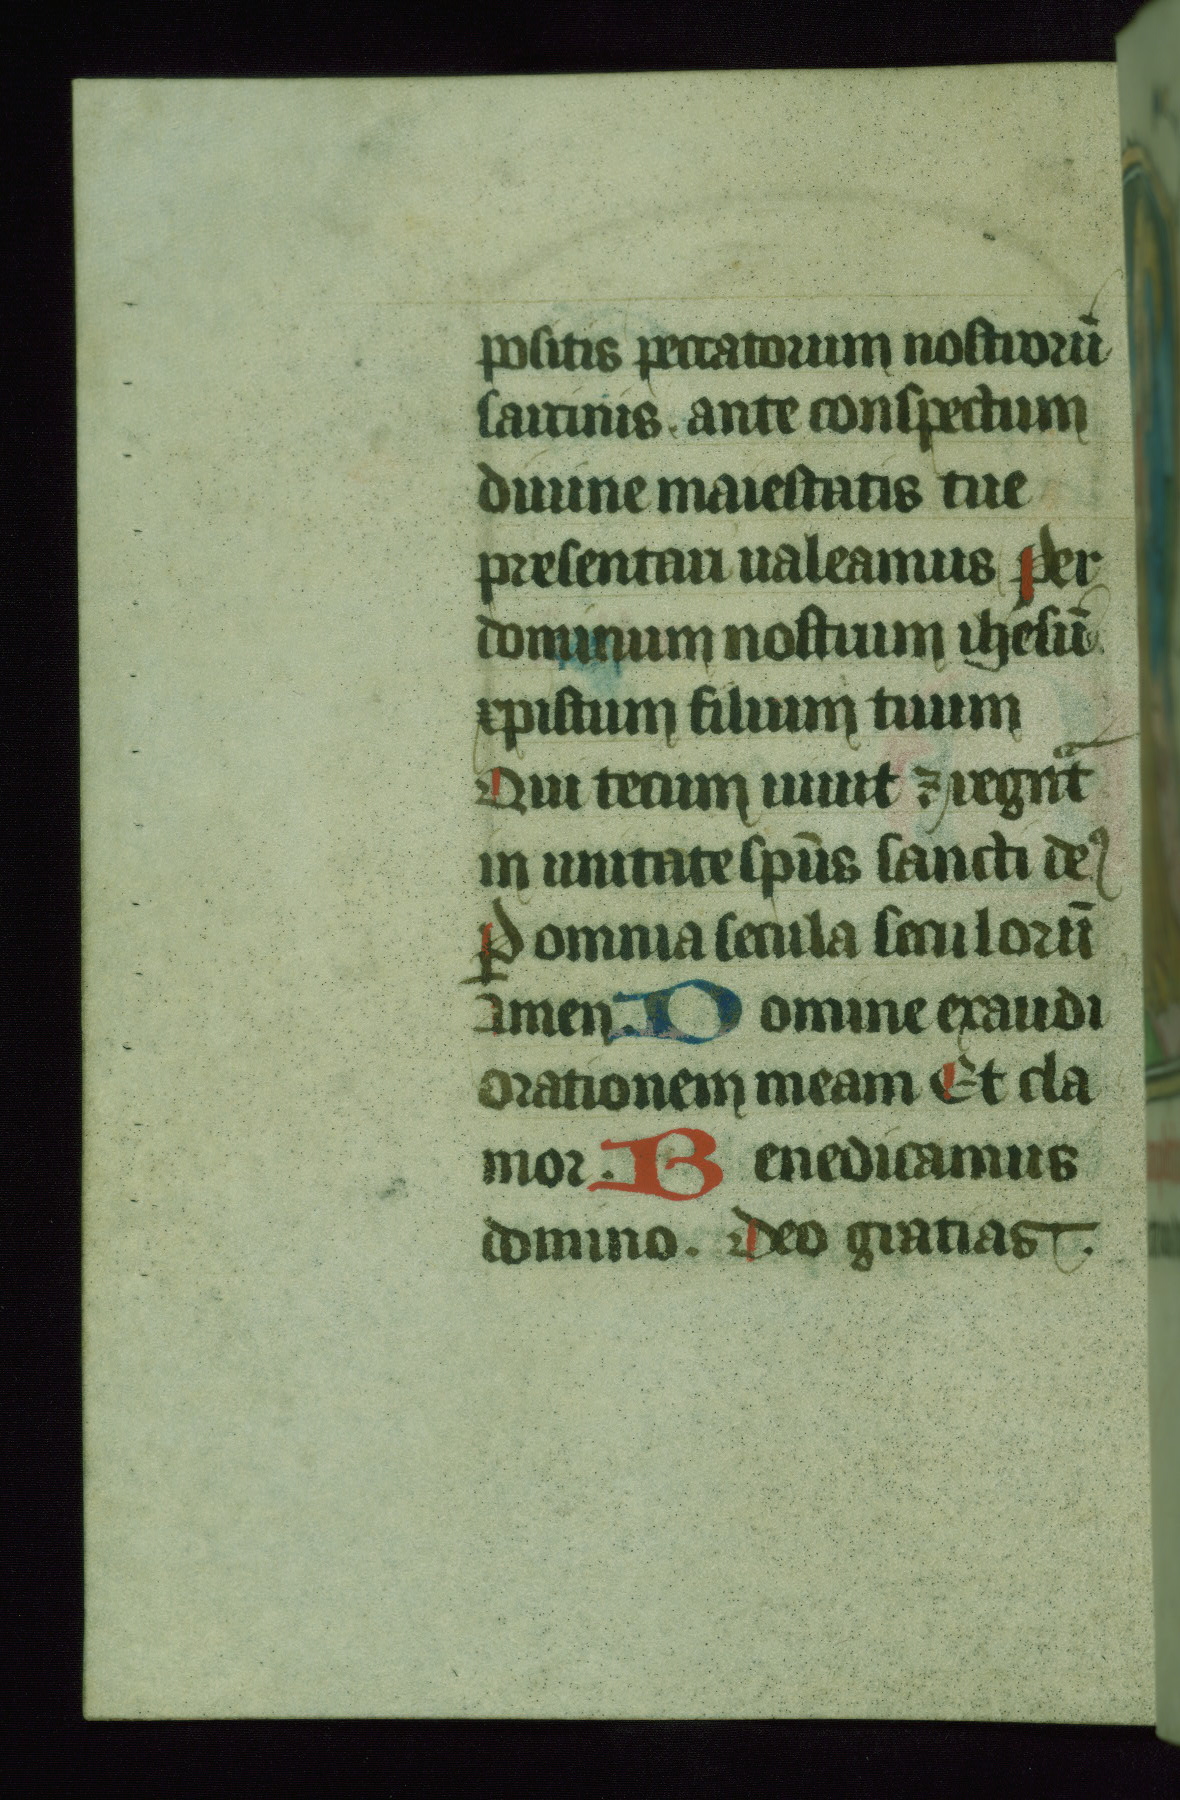 positis peccatorum nostrorū
sarcinis. ante conspectum
diuine maiestatis tue
presentari ualeamus Per
dominum nostrum ihesū
xpistum filium tuum
Qui tecum uiuit ⁊ regnat
in unitate spūs sancti de⁹
P omnia secula seculorū
Amen. Domine exaudi
orationem meam Et cla
mor. Benedicamus
domino. Deo gratias.